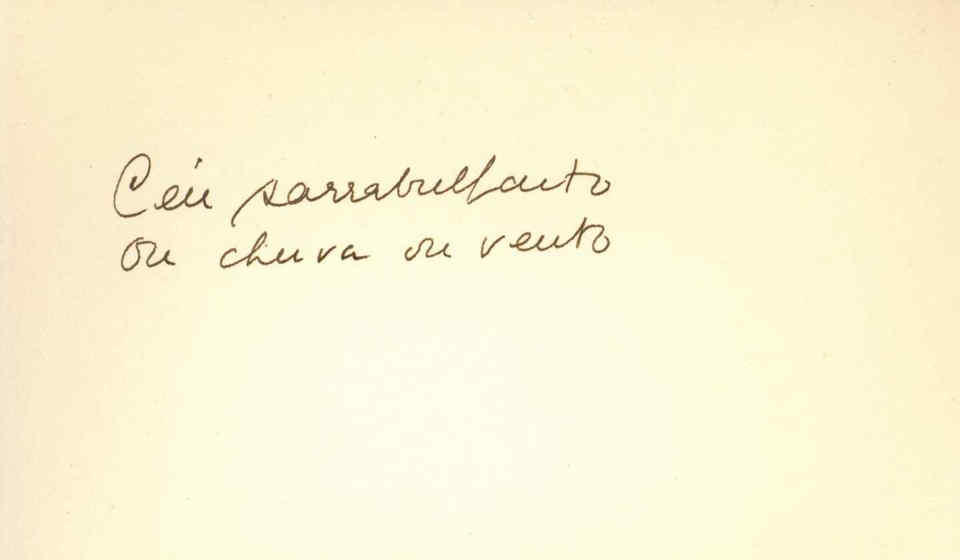 Céu sarrabulhento
ou chuva ou vento